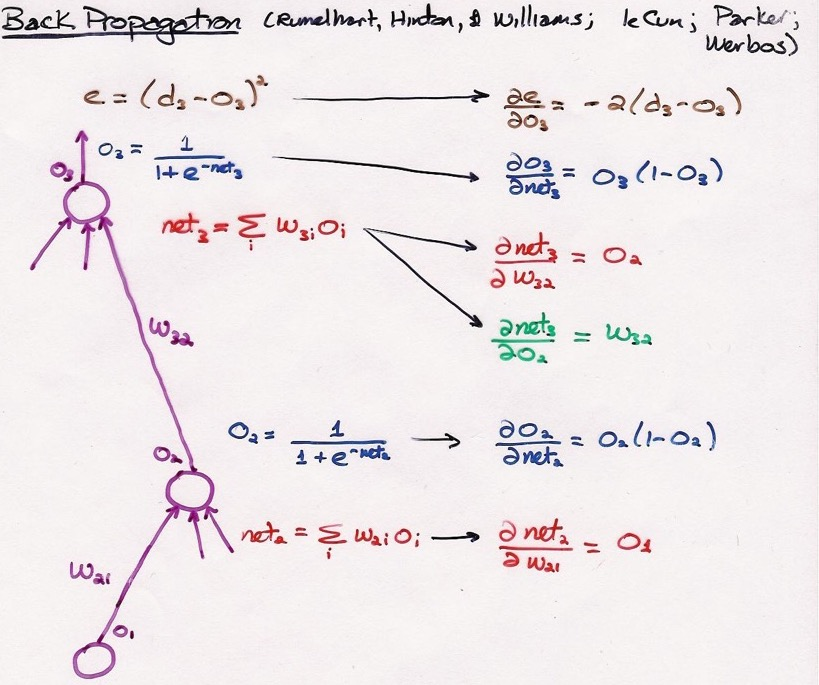 Back Propagation (Rumelhart, Hinton, & Williams; le Cun; Parker;
Werbos)
e = (d₃-O₃)² → ∂e/∂O₃ = -2(d₃-O₃)
O₃ = 1/(1+e^-net₃) → ∂O₃/∂net₃ = O₃(1-O₃)
O₃
net₃ = Σᵢ W₃ᵢOᵢ → ∂net₃/∂W₃₂ = O₂
∂net₃/∂O₂ = W₃₂
W₃₂
O₂ = 1/(1+e^-net₂) → ∂O₂/∂net₂ = O₂(1-O₂)
O₂
net₂ = Σᵢ W₂ᵢOᵢ → ∂net₂/∂W₂₁ = O₁
W₂₁
O₁